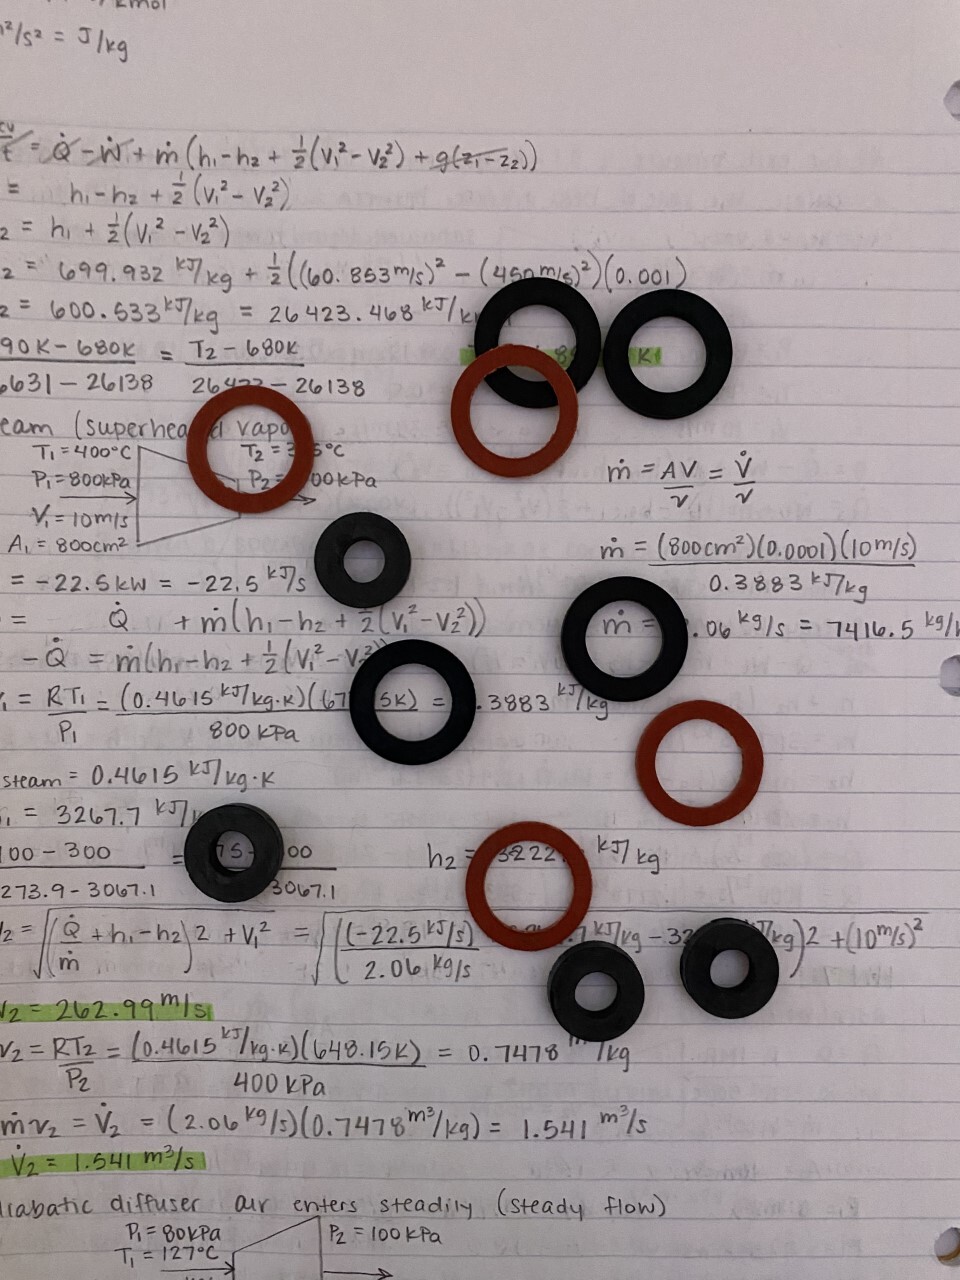 kmol
m²/s² = J/kg
= Q̇ - Ẇ + ṁ (h₁-h₂ + ½(V₁² - V₂²) + g(z₁-z₂))
= h₁-h₂ + ½(V₁² - V₂²)
2 = h₁ + ½(V₁² - V₂²)
2 = 699.932 kJ/kg + ½((60.853m/s)² - (450m/s)²)(0.001)
2 = 600.533 kJ/kg = 26423.468 kJ/
90K - 680K = T₂ - 680K
6631 - 26138 26423 - 26138
K
eam (superheated vapo
T₁ = 400°C T₂ = 3 5°C
P₁ = 800kPa P₂ = 00kPa
V₁ = 10m/s
A₁ = 800cm²
ṁ = AV/v = V̇/v
ṁ = (800cm²)(0.0001)(10m/s)
0.3883 kJ/kg
= -22.5kW = -22.5 kJ/s
= Q̇ + ṁ(h₁-h₂ + ½(V₁²-V₂²))
ṁ = .06 kg/s = 7416.5 kg/h
-Q̇ = ṁ(h₁-h₂ + ½(V₁²-V₂²))
= RT₁/P₁ = (0.4615 kJ/kg·K)(67 5K) = .3883 kJ/kg
800 kPa
steam = 0.4615 kJ/kg·K
= 3267.7 kJ/
100 - 300 = 75- 00
273.9 - 3067.1 3067.1
h₂ = 3222. kJ/kg
/2 = √((Q̇/ṁ + h₁-h₂)2 + V₁²) = √(((-22.5 kJ/s)/2.06 kg/s .7 kJ/kg - 32 kJ/kg)2 + (10m/s)²
V₂ = 262.99 m/s
v₂ = RT₂/P₂ = (0.4615 kJ/kg·K)(648.15K) = 0.7478 m /kg
400 kPa
ṁv₂ = V̇₂ = (2.06 kg/s)(0.7478 m³/kg) = 1.541 m³/s
V̇₂ = 1.541 m³/s
diabatic diffuser air enters steadily (steady flow)
P₁ = 80kPa P₂ = 100kPa
T₁ = 127°C